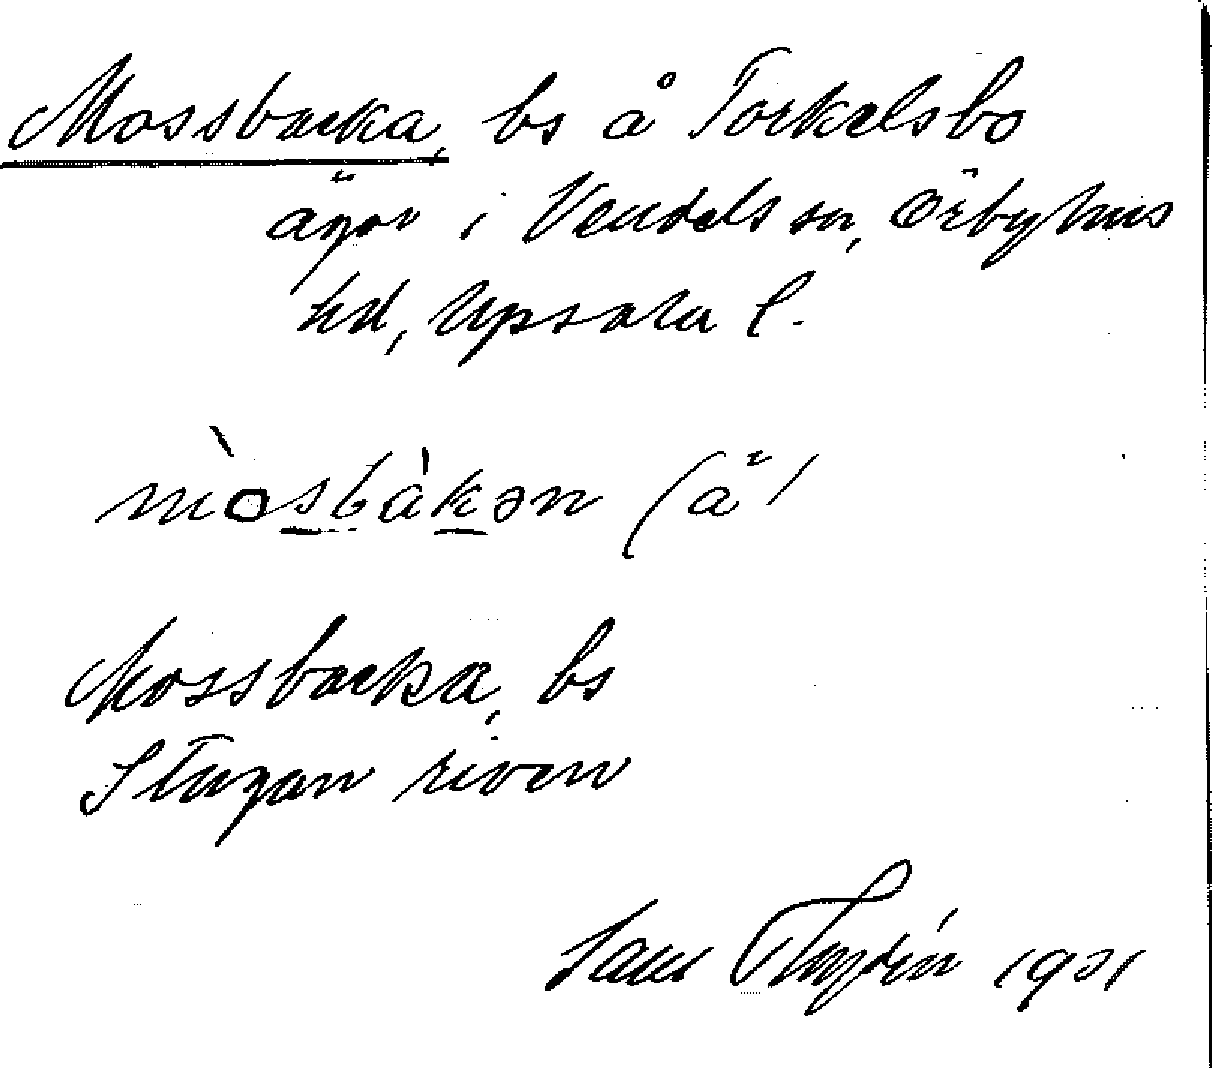 Mossbacka, bs å Torkelsbo
ägor i Vendels sn, Örbyhus
hd, Upsala l.
mòsbàkən (å)
Mossbacka, bs
Stugan riven
1931